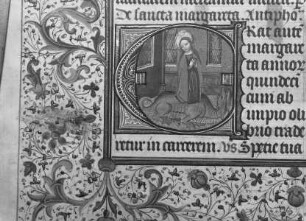 De sancta margareta. Antipho.
Rat autē
margare
ta annor̄
quindeci
cum ab
impio oli
brio trade
retur in carcerem. Vs Specie tua